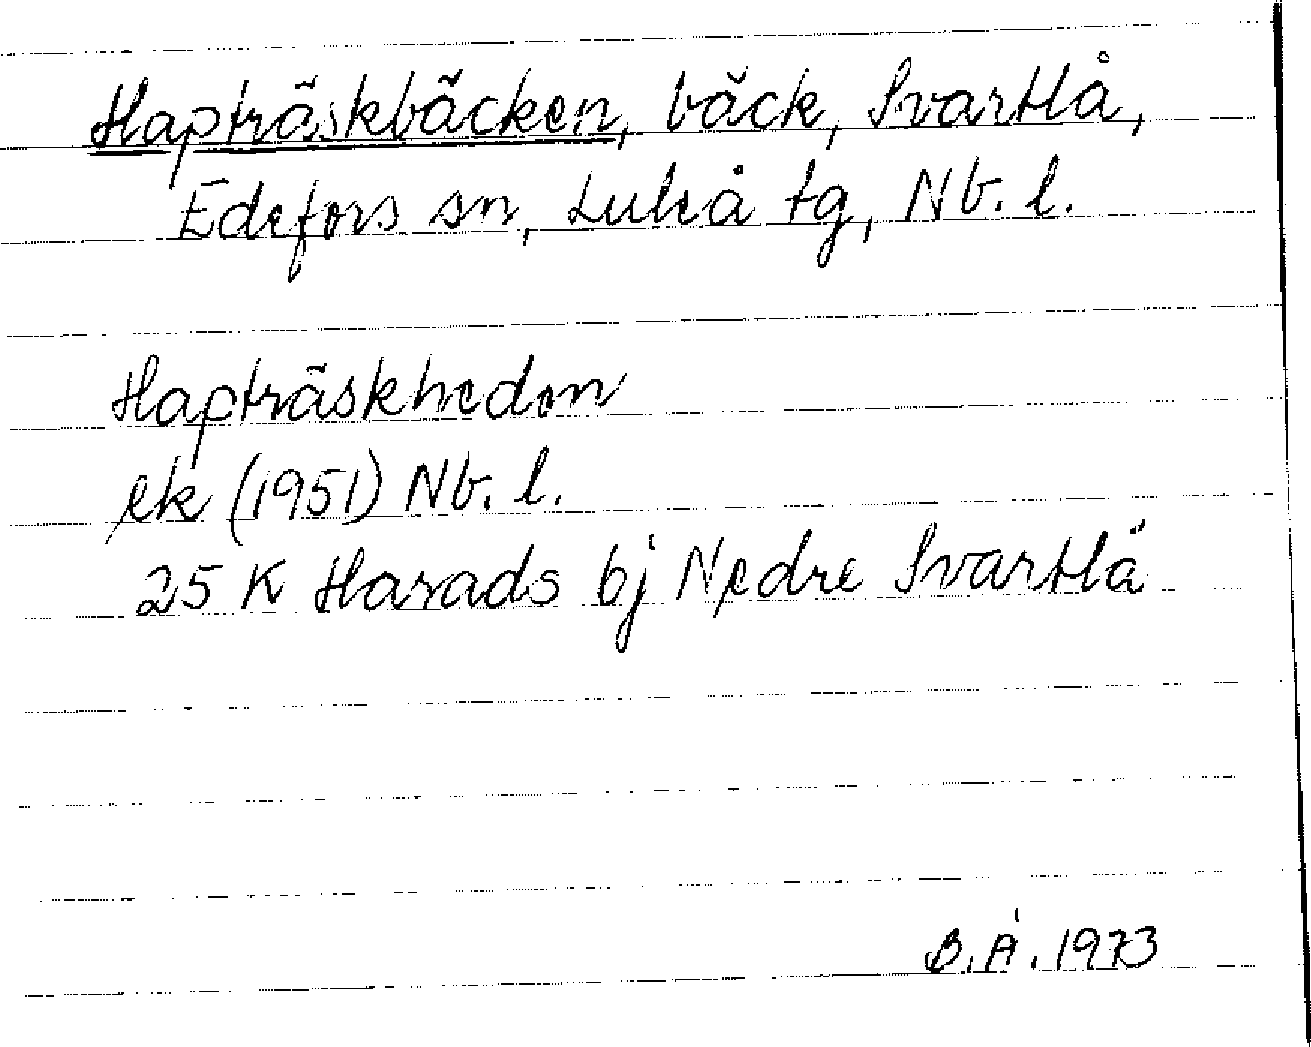 Hapträskbäcken, bäck, Svartlå,
Edefors sn, Luleå tg, Nb. l.
Hapträskheden
ek (1951) Nb. l.
25 K Harads bj Nedre Svartlå
B.Å. 1973